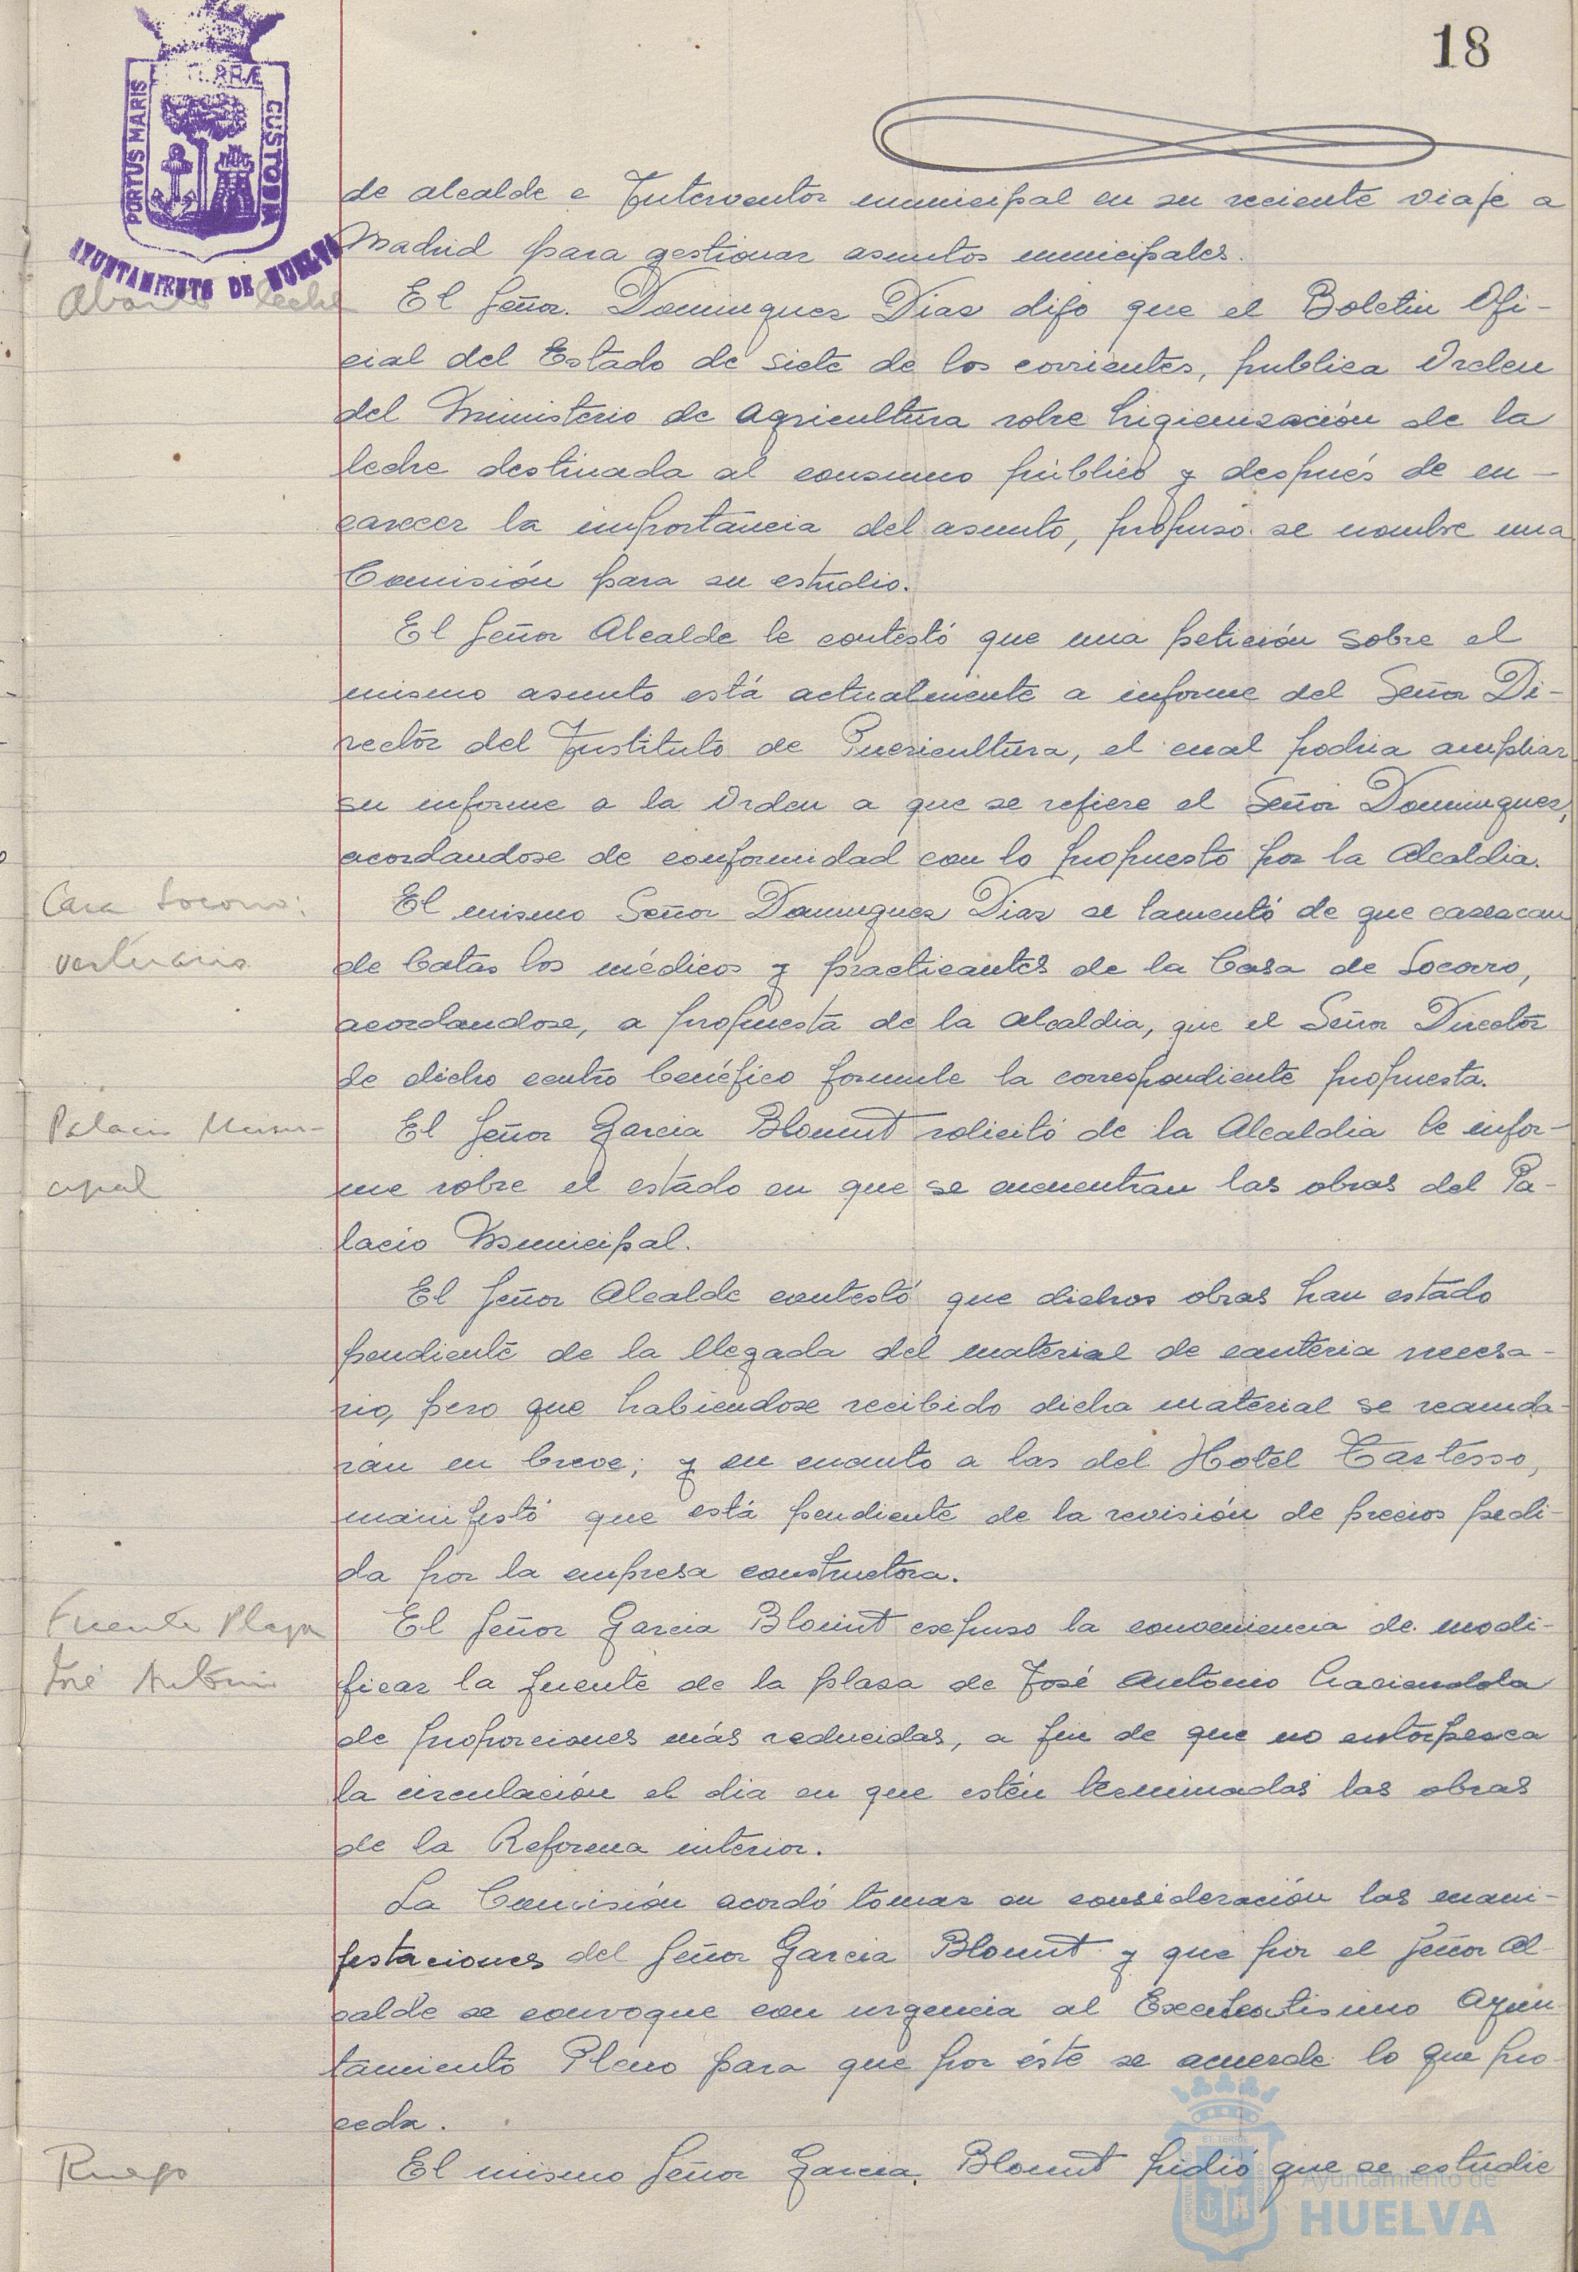 18
PORTUS MARIS ET TERRÆ CUSTODIA
AYUNTAMIENTO DE HUELVA
de alcalde e Interventor municipal en su reciente viaje a
Madrid para gestionar asuntos municipales.
Abasto leche
El Señor. Dominguez Diaz dijo que el Boletin Ofi-
cial del Estado de siete de los corrientes, publica Orden
del Ministerio de Agricultura sobre higienización de la
leche destinada al consumo público y después de en-
carecer la importancia del asunto, propuso se nombre una
Comisión para su estudio.
El Señor Alcalde le contestó que una petición sobre el
mismo asunto está actualmente a informe del Señor Di-
rector del Instituto de Puericultura, el cual podria ampliar
su informe a la Orden a que se refiere el Señor Dominguez,
acordandose de conformidad con lo propuesto por la Alcaldia.
Casa Socorro:
vestuario
El mismo Señor Dominguez Diaz se lamentó de que carezcan
de batas los médicos y practicantes de la Casa de Socorro,
acordandose, a propuesta de la Alcaldia, que el Señor Director
de dicho centro benéfico formule la correspondiente propuesta.
Palacio Muni-
cipal
El Señor Garcia Blount solicitó de la Alcaldia le infor-
me sobre el estado en que se encuentran las obras del Pa-
lacio Municipal.
El Señor Alcalde contestó que dichos obras han estado
pendiente de la llegada del material de canteria necesa-
rio, pero que habiendose recibido dicha material se reanuda-
rán en breve; y en cuanto a las del Hotel Tartesso,
manifestó que está pendiente de la revisión de precios pedi-
da por la empresa constructora.
Fuente Plaza
José Antonio
El Señor Garcia Blount expuso la conveniencia de modi-
ficar la fuente de la plaza de José Antonio haciendola
de proporciones más reducidas, a fin de que no entorpezca
la circulación el dia en que estén terminadas las obras
de la Reforma interior.
La Comisión acordó tomar en consideración las mani-
festaciones del Señor Garcia Blount y que por el Señor Al-
calde se convoque con urgencia al Excelentisimo Ayun-
tamiento Pleno para que por éste se acuerde lo que pro-
ceda.
Ruego
El mismo Señor Garcia Blount pidió que se estudie
Ayuntamiento de
HUELVA